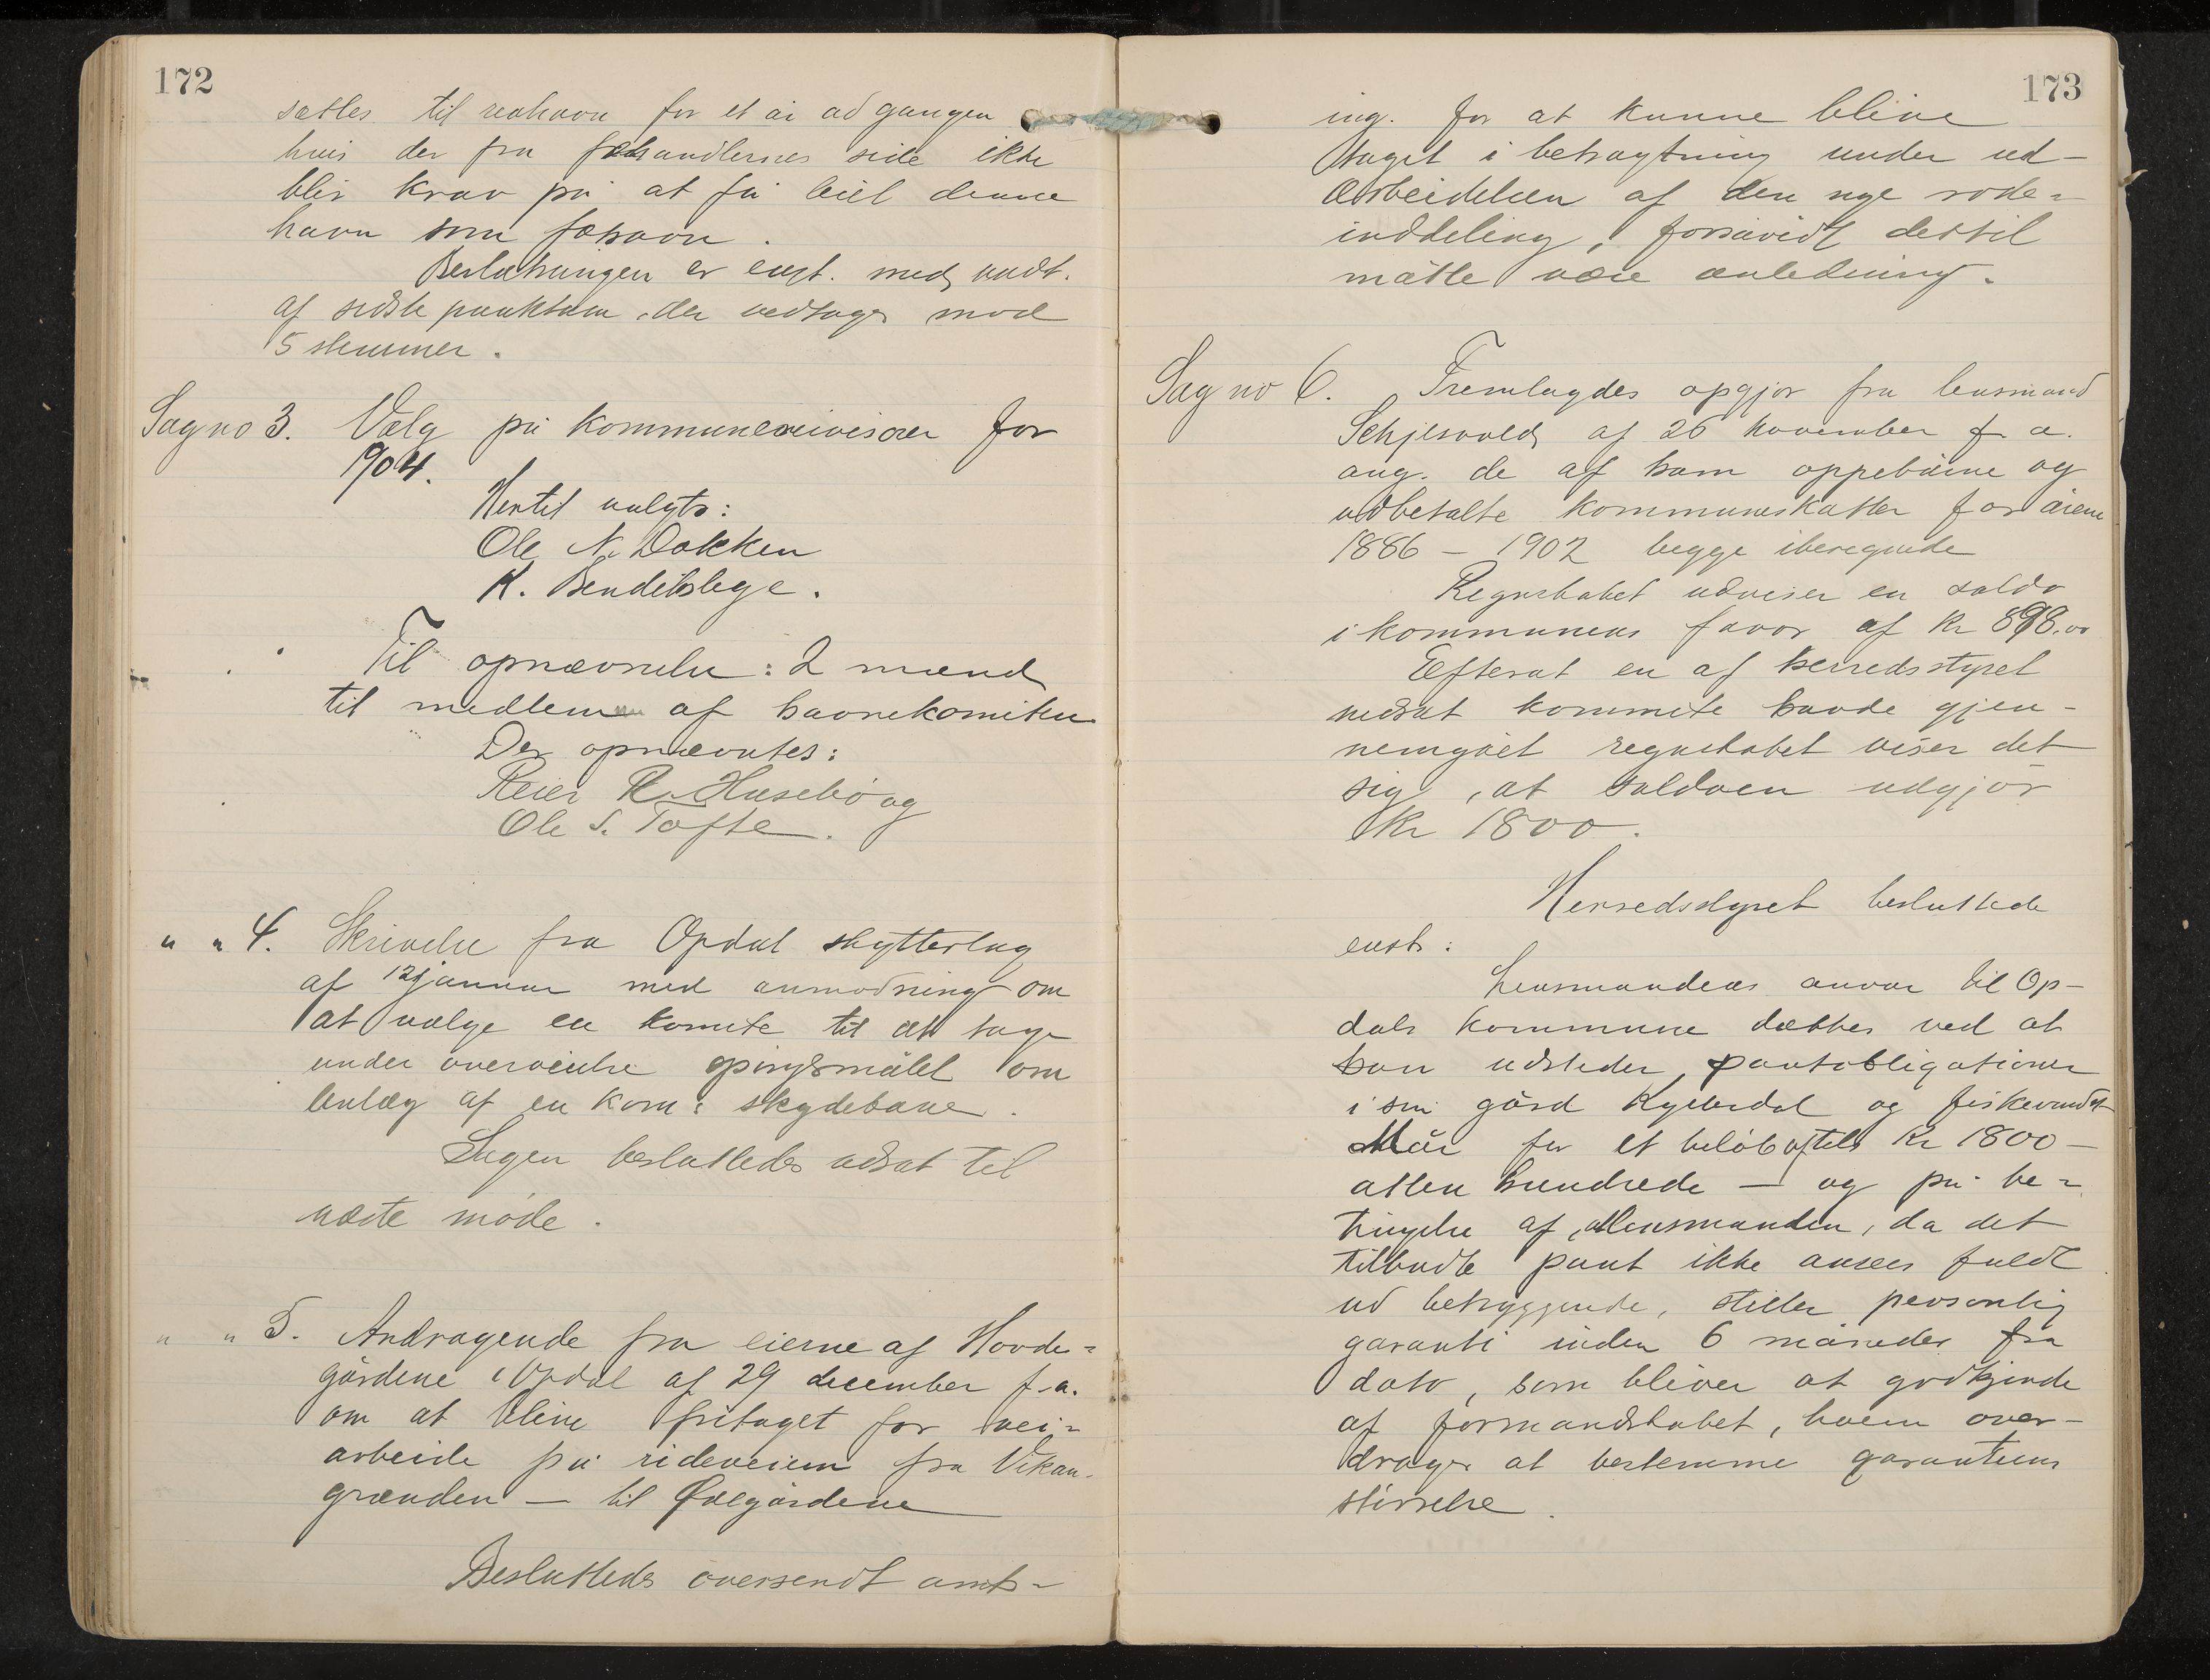 172
sættes til renhavn for et år ad gangen
hvis der fra fæhandlernes side ikke
blir krav på at få leiet denne
havn som fæhavn.
Beslutningen er enst. med undt.
af sidste punktum, der vedtages mod
5 stemmer.
Sag no 3. Valg på kommunerevisorer for
1904.
Hertil valgtes:
Ole N. Dokken
K. Bendikslege.
Til opnævnelse: 2 mænd
til medlem af havnekomiteen
Der opnævntes:
Reier R. Husebö og
Ole S. Tofte.
" " 4. Skrivelse fra Opdal skytterlag
af 12 januar med anmodning om
at vælge en komite til at tage
under overveielse spörgsmålet om
anlæg af en kom: skydebane.
Sagen besluttedes udsat til
næste möde.
" " 5. Andragende fra eierne af Hovde=
gårdene i Opdal af 29 december f.a.
om at blive fritaget for vei=
arbeide på rideveien fra Vikan-
grænden — til Öilegårdene
Besluttedes oversendt amts-
173
ing. for at kunne blive
taget i betragtning under ud-
arbeidelsen af den nye rode=
inddeling, forsåvidt dertil
måtte være anledning.
Sag no 6. Fremlagdes opgjör fra lensmand
Schjesvold af 26 november f.a.
ang. de af ham oppebårne og
udbetalte kommuneskatter for årene
1886 – 1902 begge iberegnede
Regnskabet udviser en saldo
i kommunens favör af Kr 898.00
Efterat en af herredsstyret
nedsat kommite havde gjen-
nemgået regnskabet viser det
sig, at saldoen udgjör
Kr 1800.
Herredsstyret besluttede
enst:
Lensmandens ansvar til Op-
dals kommune dækkes ved at
han udsteder pantobligationer
i sin gård Kyllesdal og fiskevandet
Mår for et belöb aftil Kr 1800 —
atten hundrede — og på be=
tingelse af, at lensmanden, da det
tilbudte pant ikke ansees fuldt
ud betryggende, stiller personlig
garanti inden 6 måneder fra
dato, som bliver at godkjende
af formandskabet, hvem over-
drages at bestemme garantiens
störrelse.